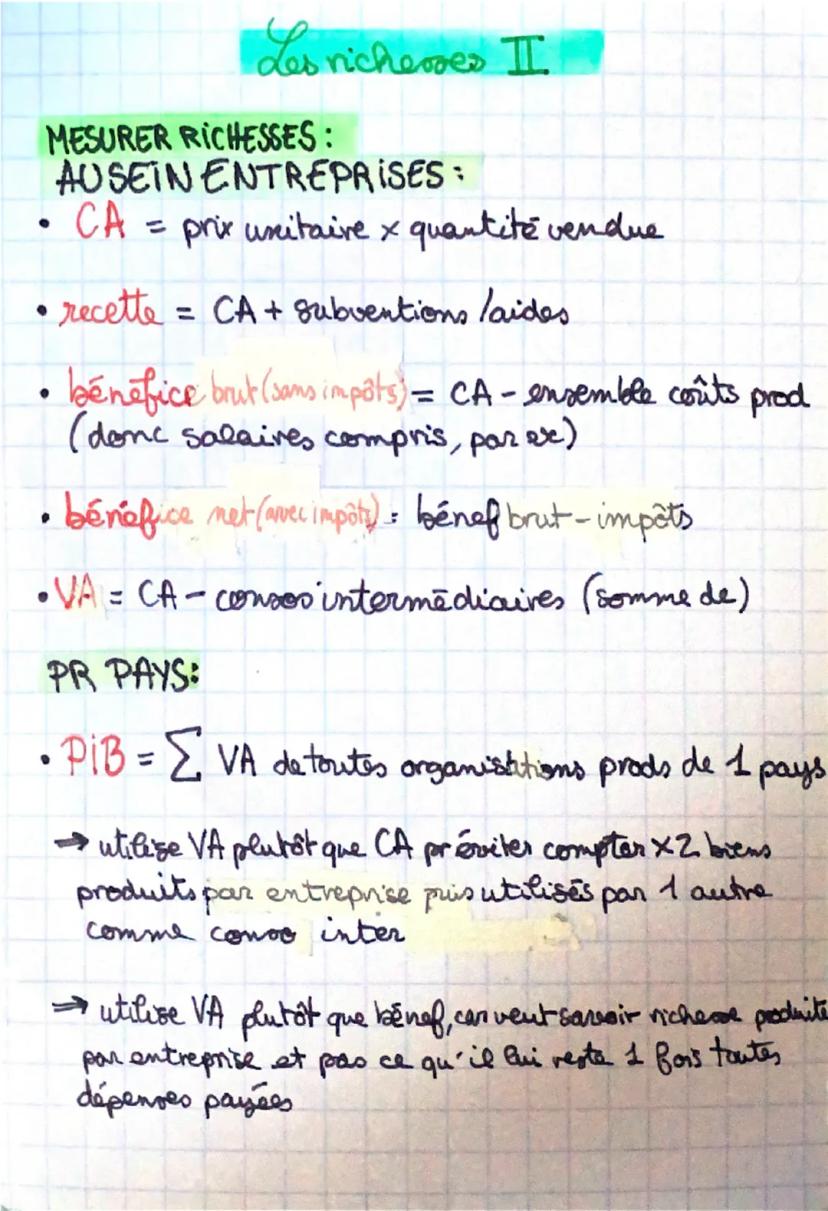 Les richesses II
MESURER RICHESSES :
AU SEIN ENTREPRISES :
• CA = prix unitaire x quantité vendue
• recette = CA + subventions /aides
• bénéfice brut (sans impôts) = CA - ensemble coûts prod
(donc salaires compris, par ex)
• bénéfice net (avec impôts) = bénef brut - impôts
• VA = CA - consos intermédiaires (somme de)
PR PAYS :
• PiB = ∑ VA de toutes organisations prods de 1 pays
→ utilise VA plutôt que CA pr éviter compter x2 biens
produits par entreprise puis utilisés par 1 autre
comme conso inter
⇒ utilise VA plutôt que bénef, car veut savoir richesse produite
par entreprise et pas ce qu'il lui reste 1 fois toutes
dépenses payées